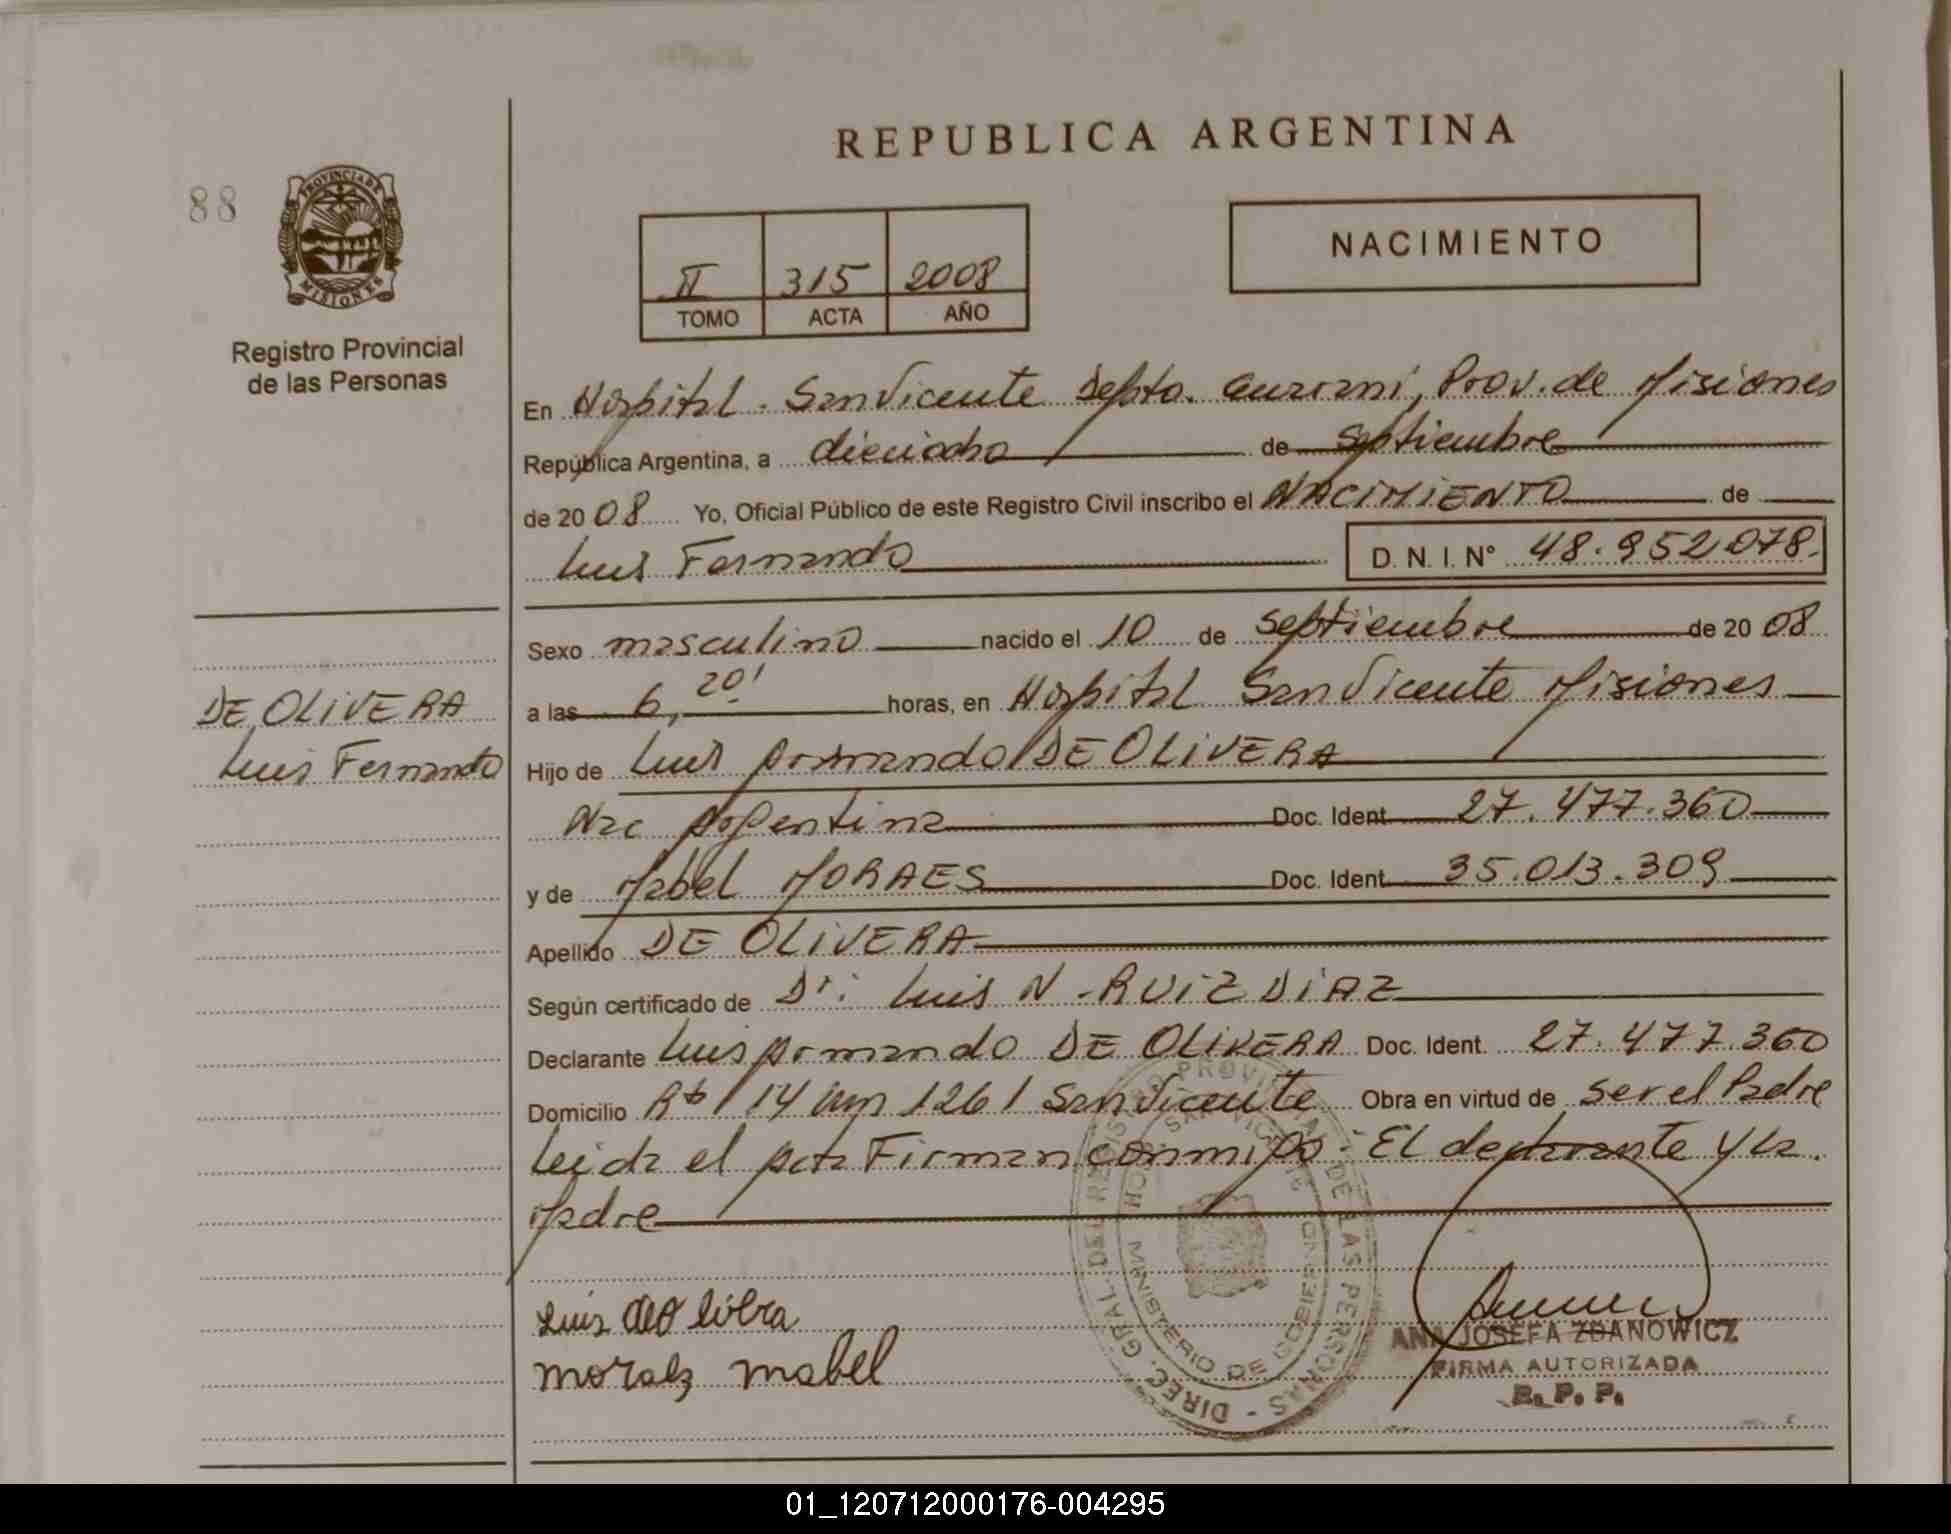 REPUBLICA ARGENTINA
88
PROVINCIA DE
MISIONES
Registro Provincial
de las Personas
II 315 2008
TOMO ACTA AÑO
NACIMIENTO
En Hospital. San Vicente Depto. Guarani, Prov. de Misiones
República Argentina, a dieciocho de Septiembre
de 2008 Yo, Oficial Público de este Registro Civil inscribo el NACIMIENTO de
Luis Fernando D. N. I. N° 48.952078.
Sexo masculino nacido el 10 de Septiembre de 2008
DE OLIVERA
Luis Fernando
a las 6,20' horas, en Hospital San Vicente Misiones
Hijo de Luis Armando DE OLIVERA
Nac Argentina Doc. Ident 27.477.360
y de Mabel MORAES Doc. Ident 35.013.309
Apellido DE OLIVERA
Según certificado de Dr: Luis N. RUIZ DIAZ
Declarante Luis Armando DE OLIVERA Doc. Ident. 27.477.360
Domicilio 14 Km 1261 San Vicente Obra en virtud de Ser el Padre
Leida el Acta Firman conmigo: El declarante y la.
Madre
Luis
mabel
DIREC. GRAL. DEL REGISTRO PROVINCIAL DE LAS PERSONAS -
MINISTERIO DE GOBIERNO
ANA JOSEFA ZDANOWICZ
FIRMA AUTORIZADA
R. P. P.
01_120712000176-004295